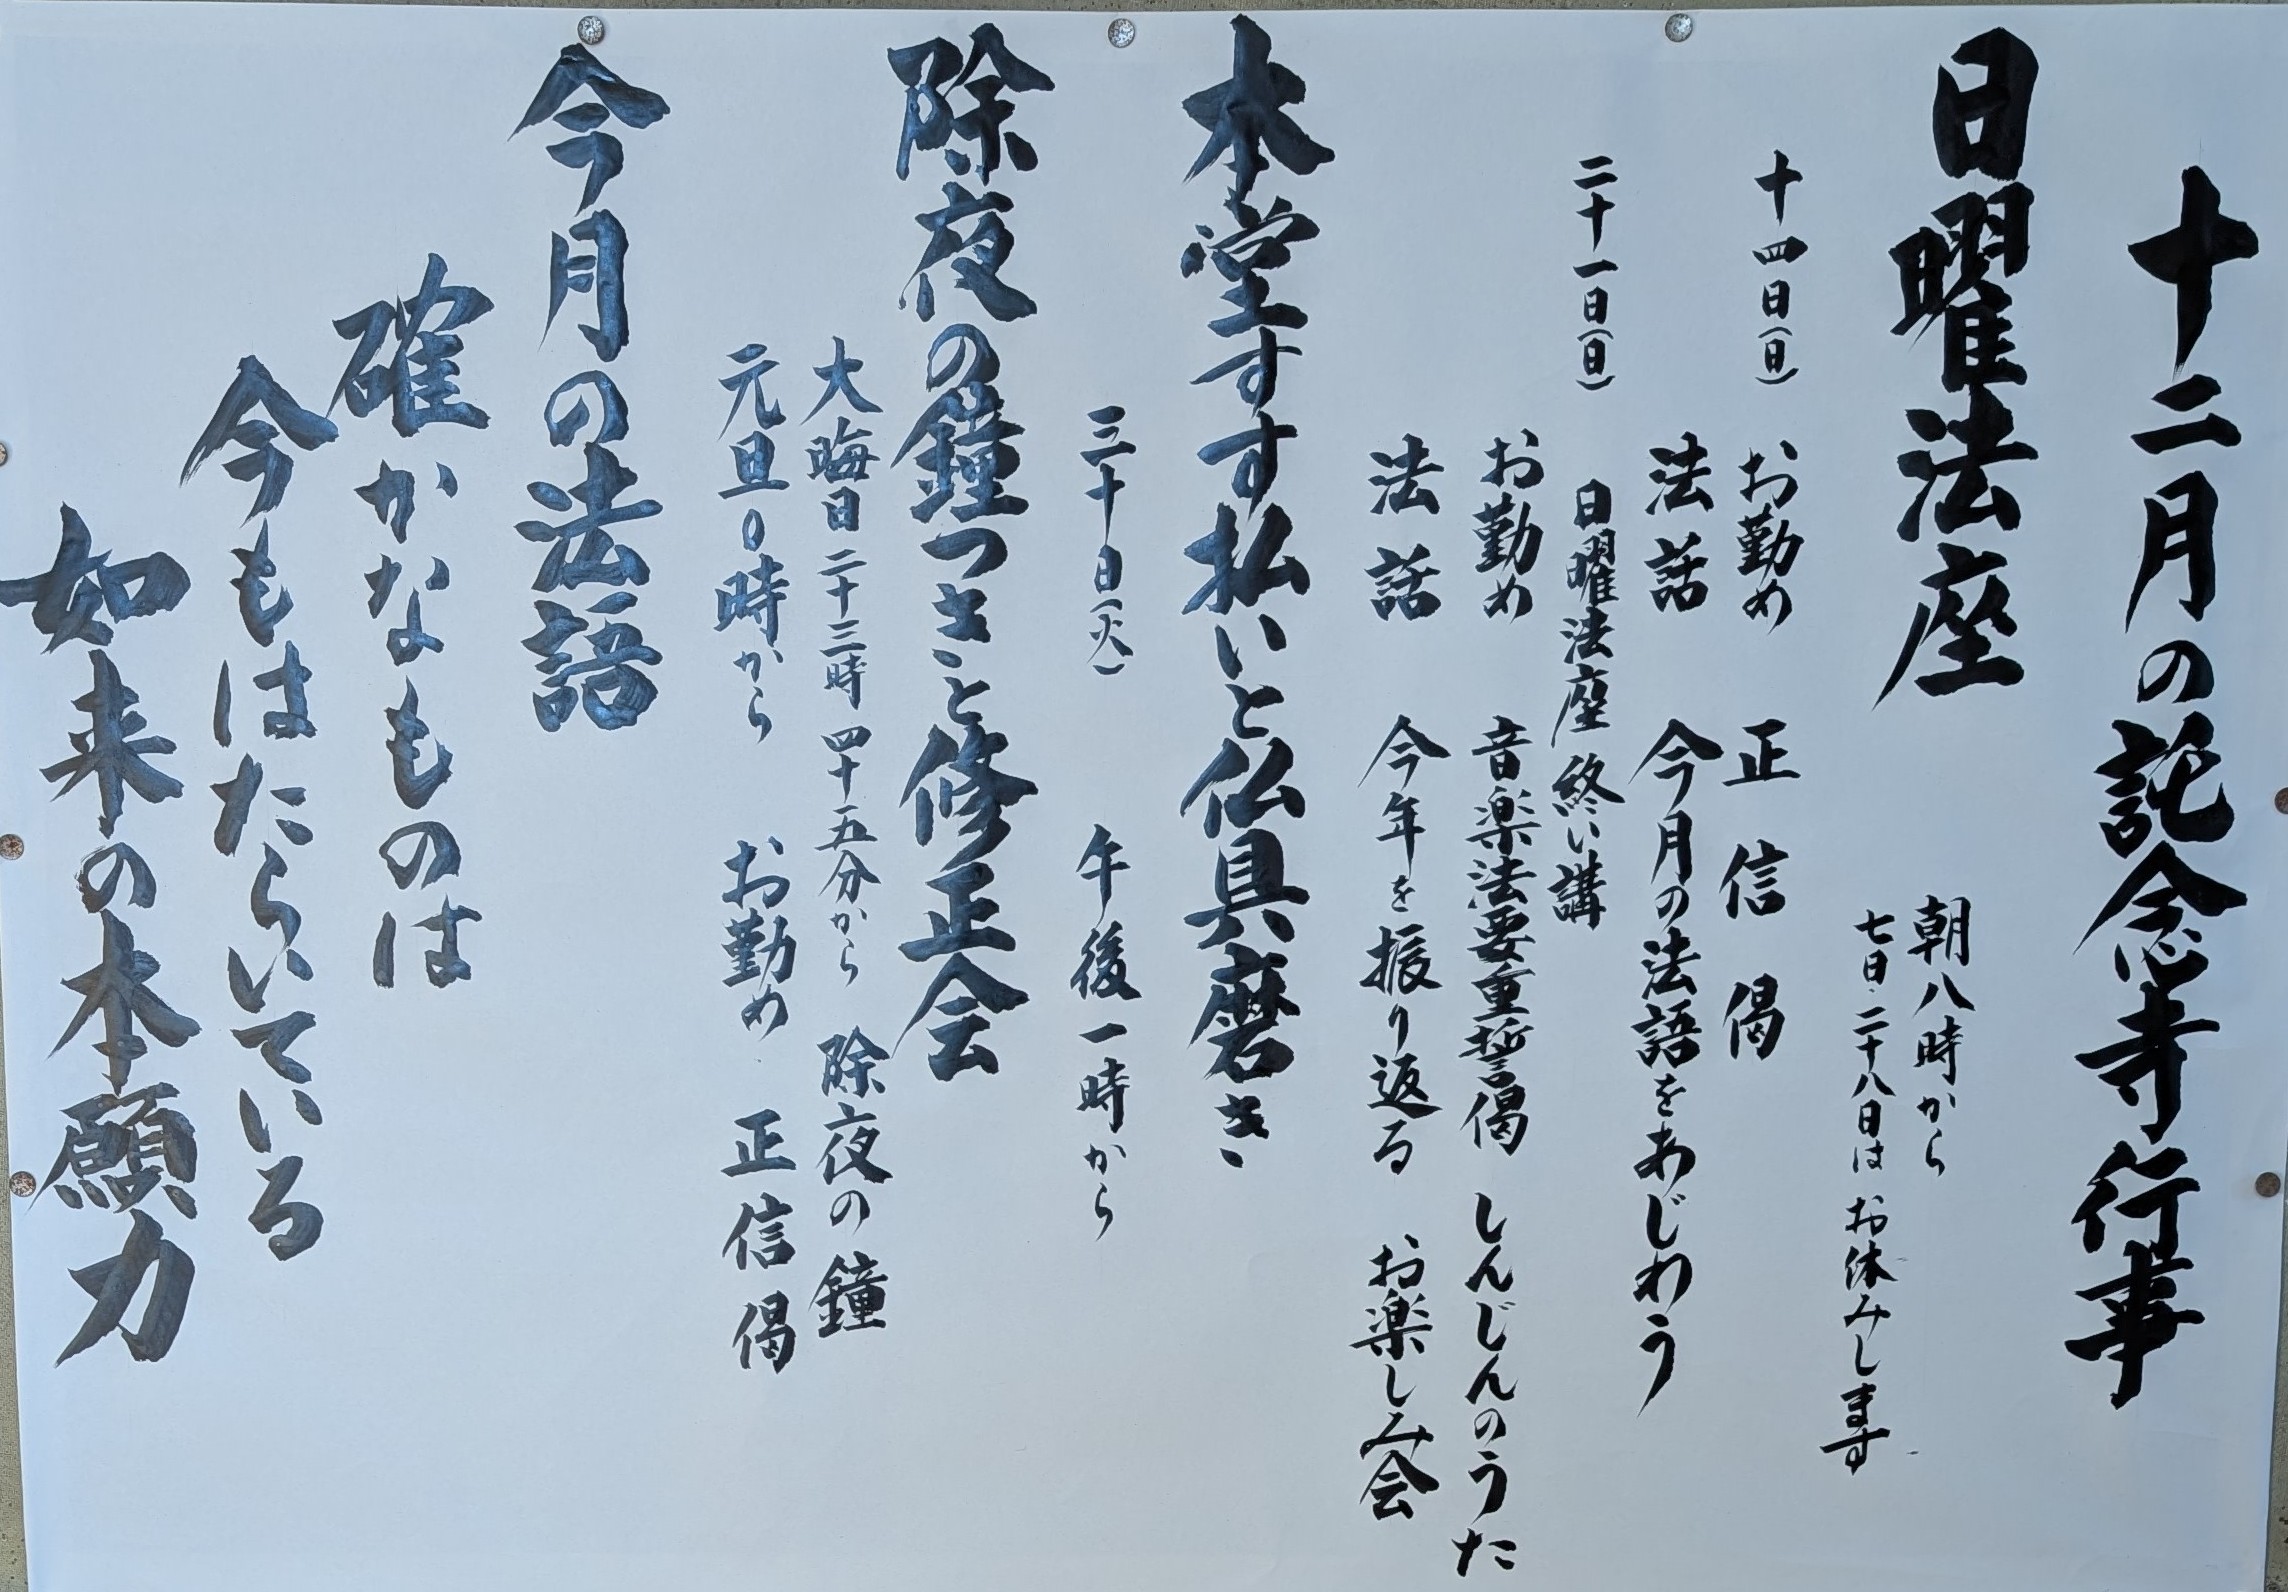 十二月の託念寺行事
日曜法座
朝八時から
七日・二十八日は お休みします
十四日(日) お勤め 正信偈
法話 今月の法語をあじわう
二十一日(日) 日曜法座 終い講
お勤め 音楽法要重誓偈 しんじんのうた
法話 今年を振り返る お楽しみ会
本堂すす払いと仏具磨き
三十日(火) 午後一時から
除夜の鐘つきと修正会
大晦日 二十三時四十五分から 除夜の鐘
元旦0時から お勤め 正信偈
今月の法語
確かなものは
今もはたらいている
如来の本願力